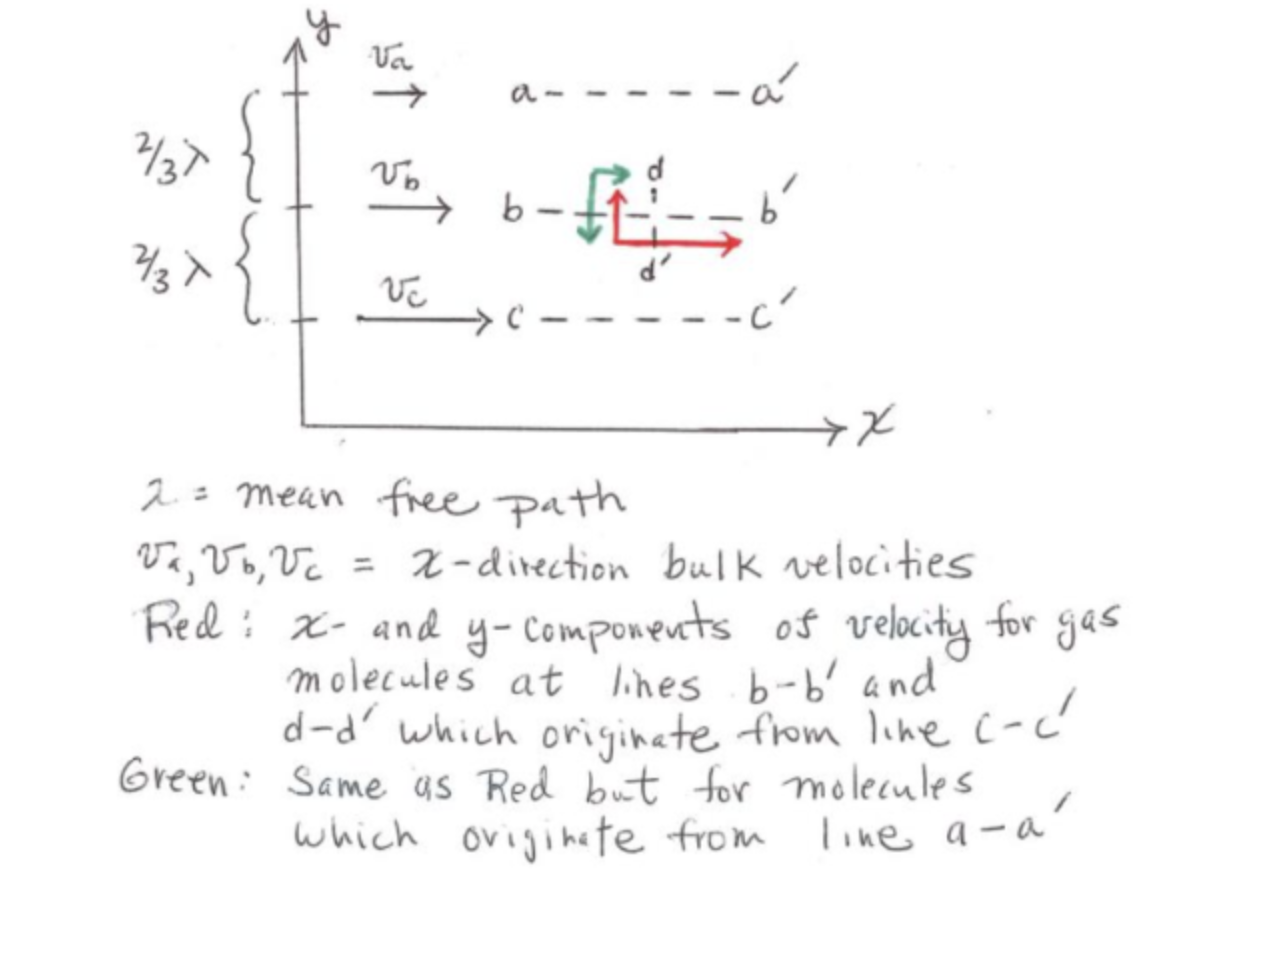 y
v_a
a - - - - - a′
2/3 λ
v_b
d
b - - - - - b′
2/3 λ
d′
v_c
c - - - - - c′
x
λ = mean free path
v_a, v_b, v_c = x-direction bulk velocities
Red: x- and y-components of velocity for gas
molecules at lines b-b′ and
d-d′ which originate from line c-c′
Green: Same as Red but for molecules
which originate from line a-a′